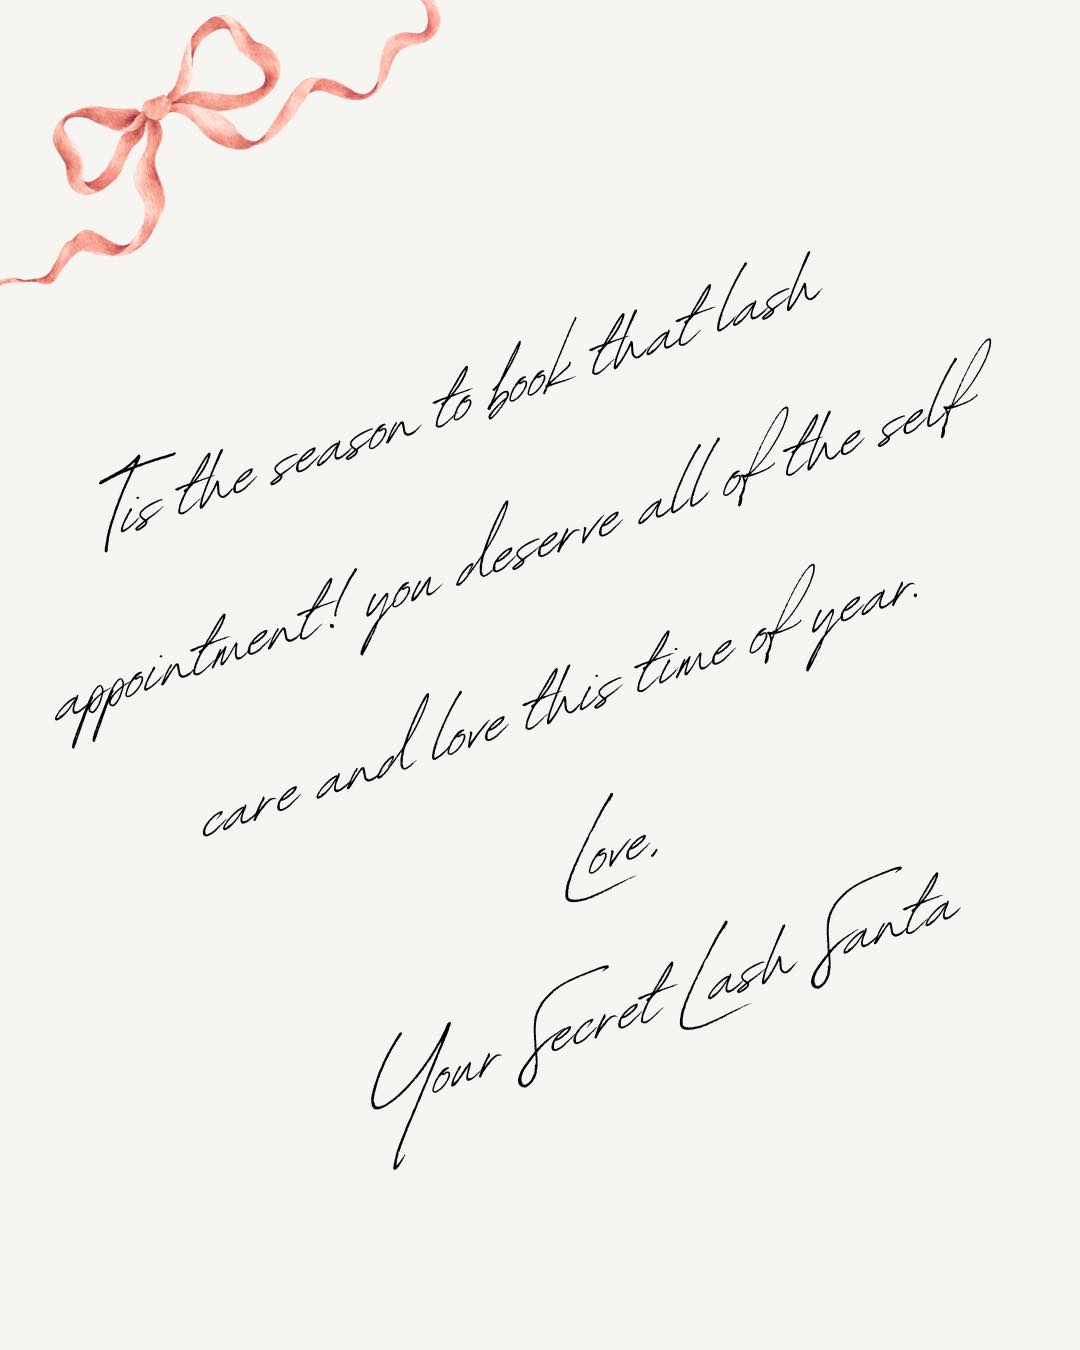 Tis the season to book that lash
appointment! you deserve all of the self
care and love this time of year.
Love,
Your Secret Lash Santa